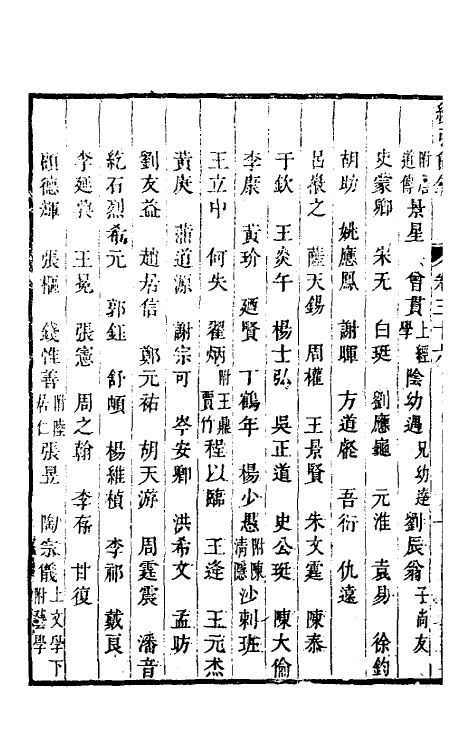 卷三十六
附道傅 景星 曾貫 上經學 陰幼遇 兄幼達 劉辰翁 子尚友
史蒙卿 宋无 白珽 劉應龜 元淮 袁易 徐鈞
胡助 姚應鳳 謝暉 方道壡 吾衍 仇遠
呂徵之 薩天錫 周權 王景賢 朱文霆 陳泰
于欽 王炎午 楊士弘 吳正道 史公珽 陳大倫
李康 黃玠 迺賢 丁鶴年 楊少愚 附陳清隱 沙剌班
王立中 何失 翟炳 附王鼎賈竹 程以臨 王逢 王元杰
黃庚 蒲道源 謝宗可 岑安卿 洪希文 孟昉
劉友益 趙居信 鄭元祐 胡天游 周霆震 潘音
紇石烈希元 郭鈺 舒頔 楊維楨 李祁 戴良
李延興 王冕 張憲 周之翰 李存 甘復
顧德輝 張樞 錢惟善 附陸居仁 張昱 陶宗儀 上文學下附藝學